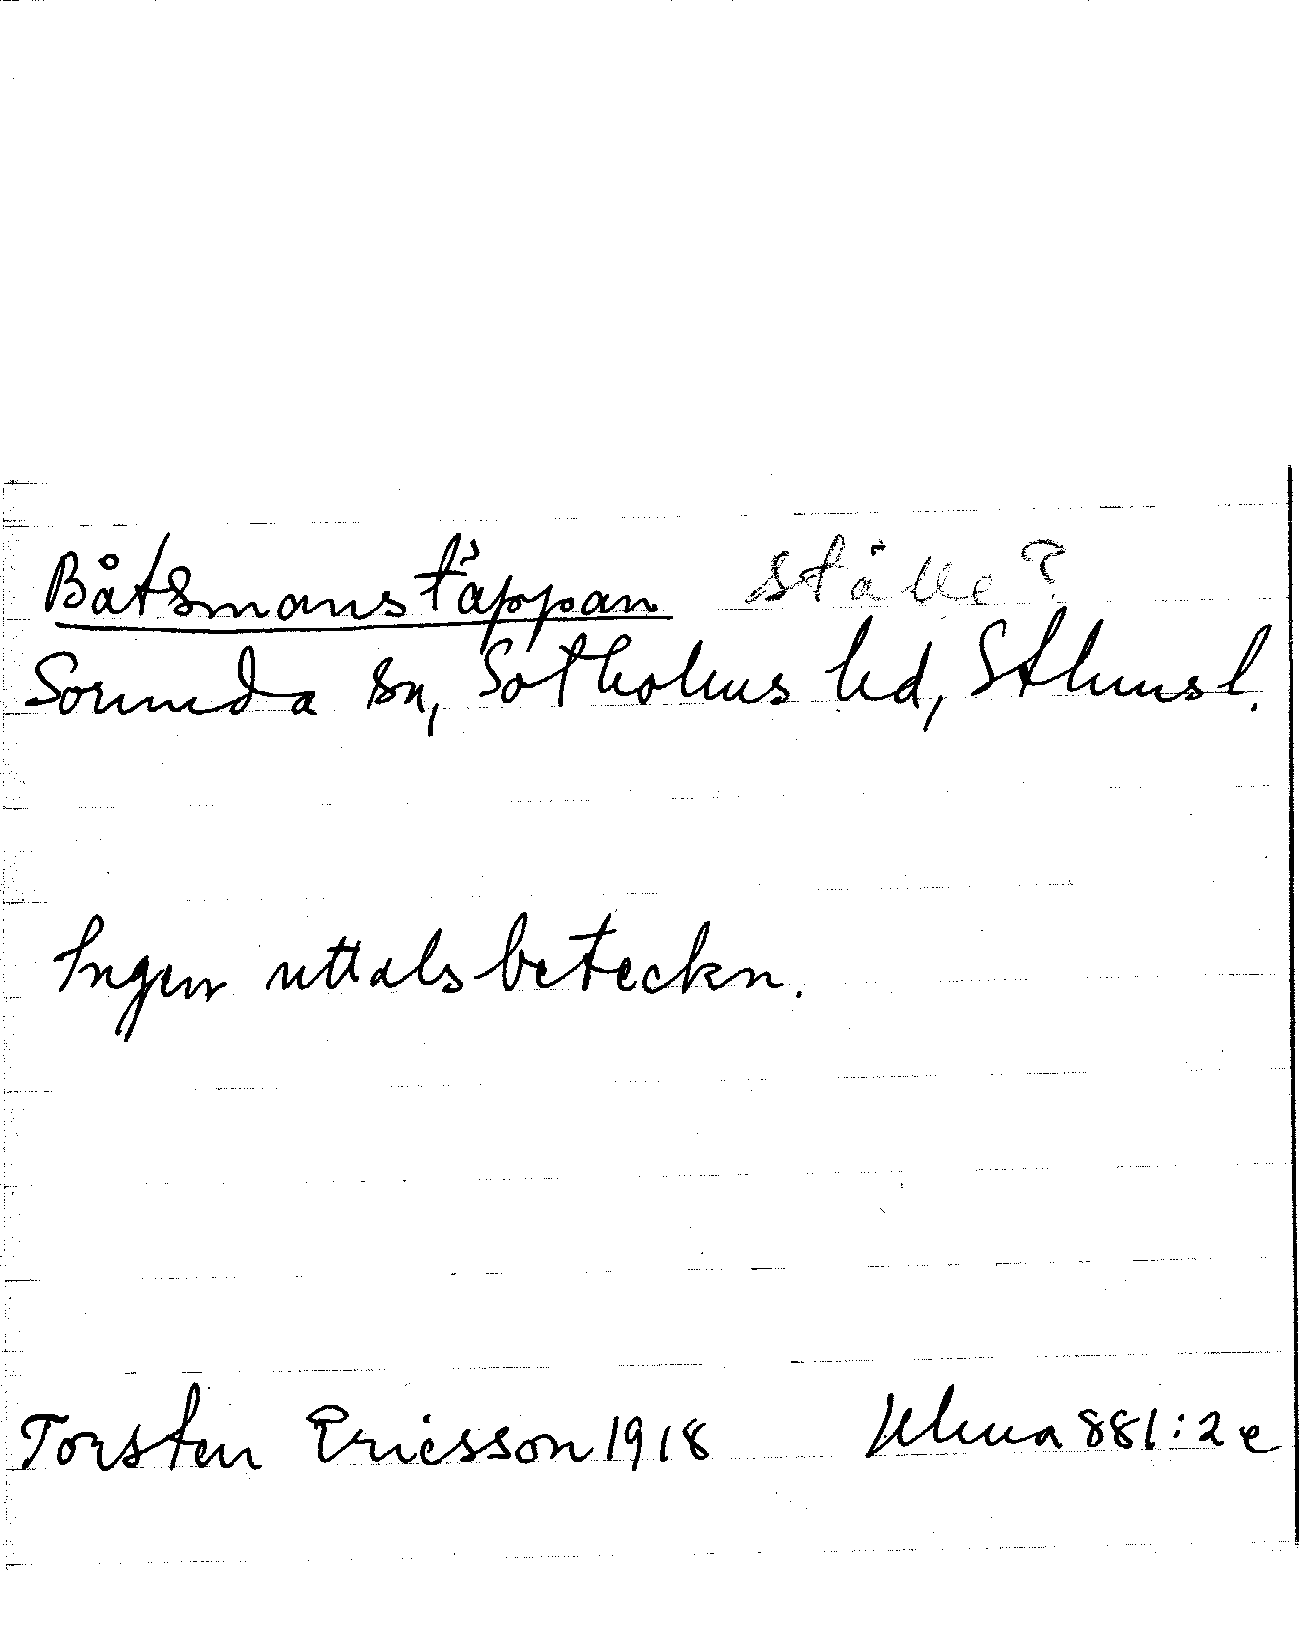 Båtsmanstäppan ställe?
Sorunda sn, Sotholms hd, Sthmsl.
Ingen uttalsbeteckn.
Torsten Ericsson 1918 Ulma 881:2 e